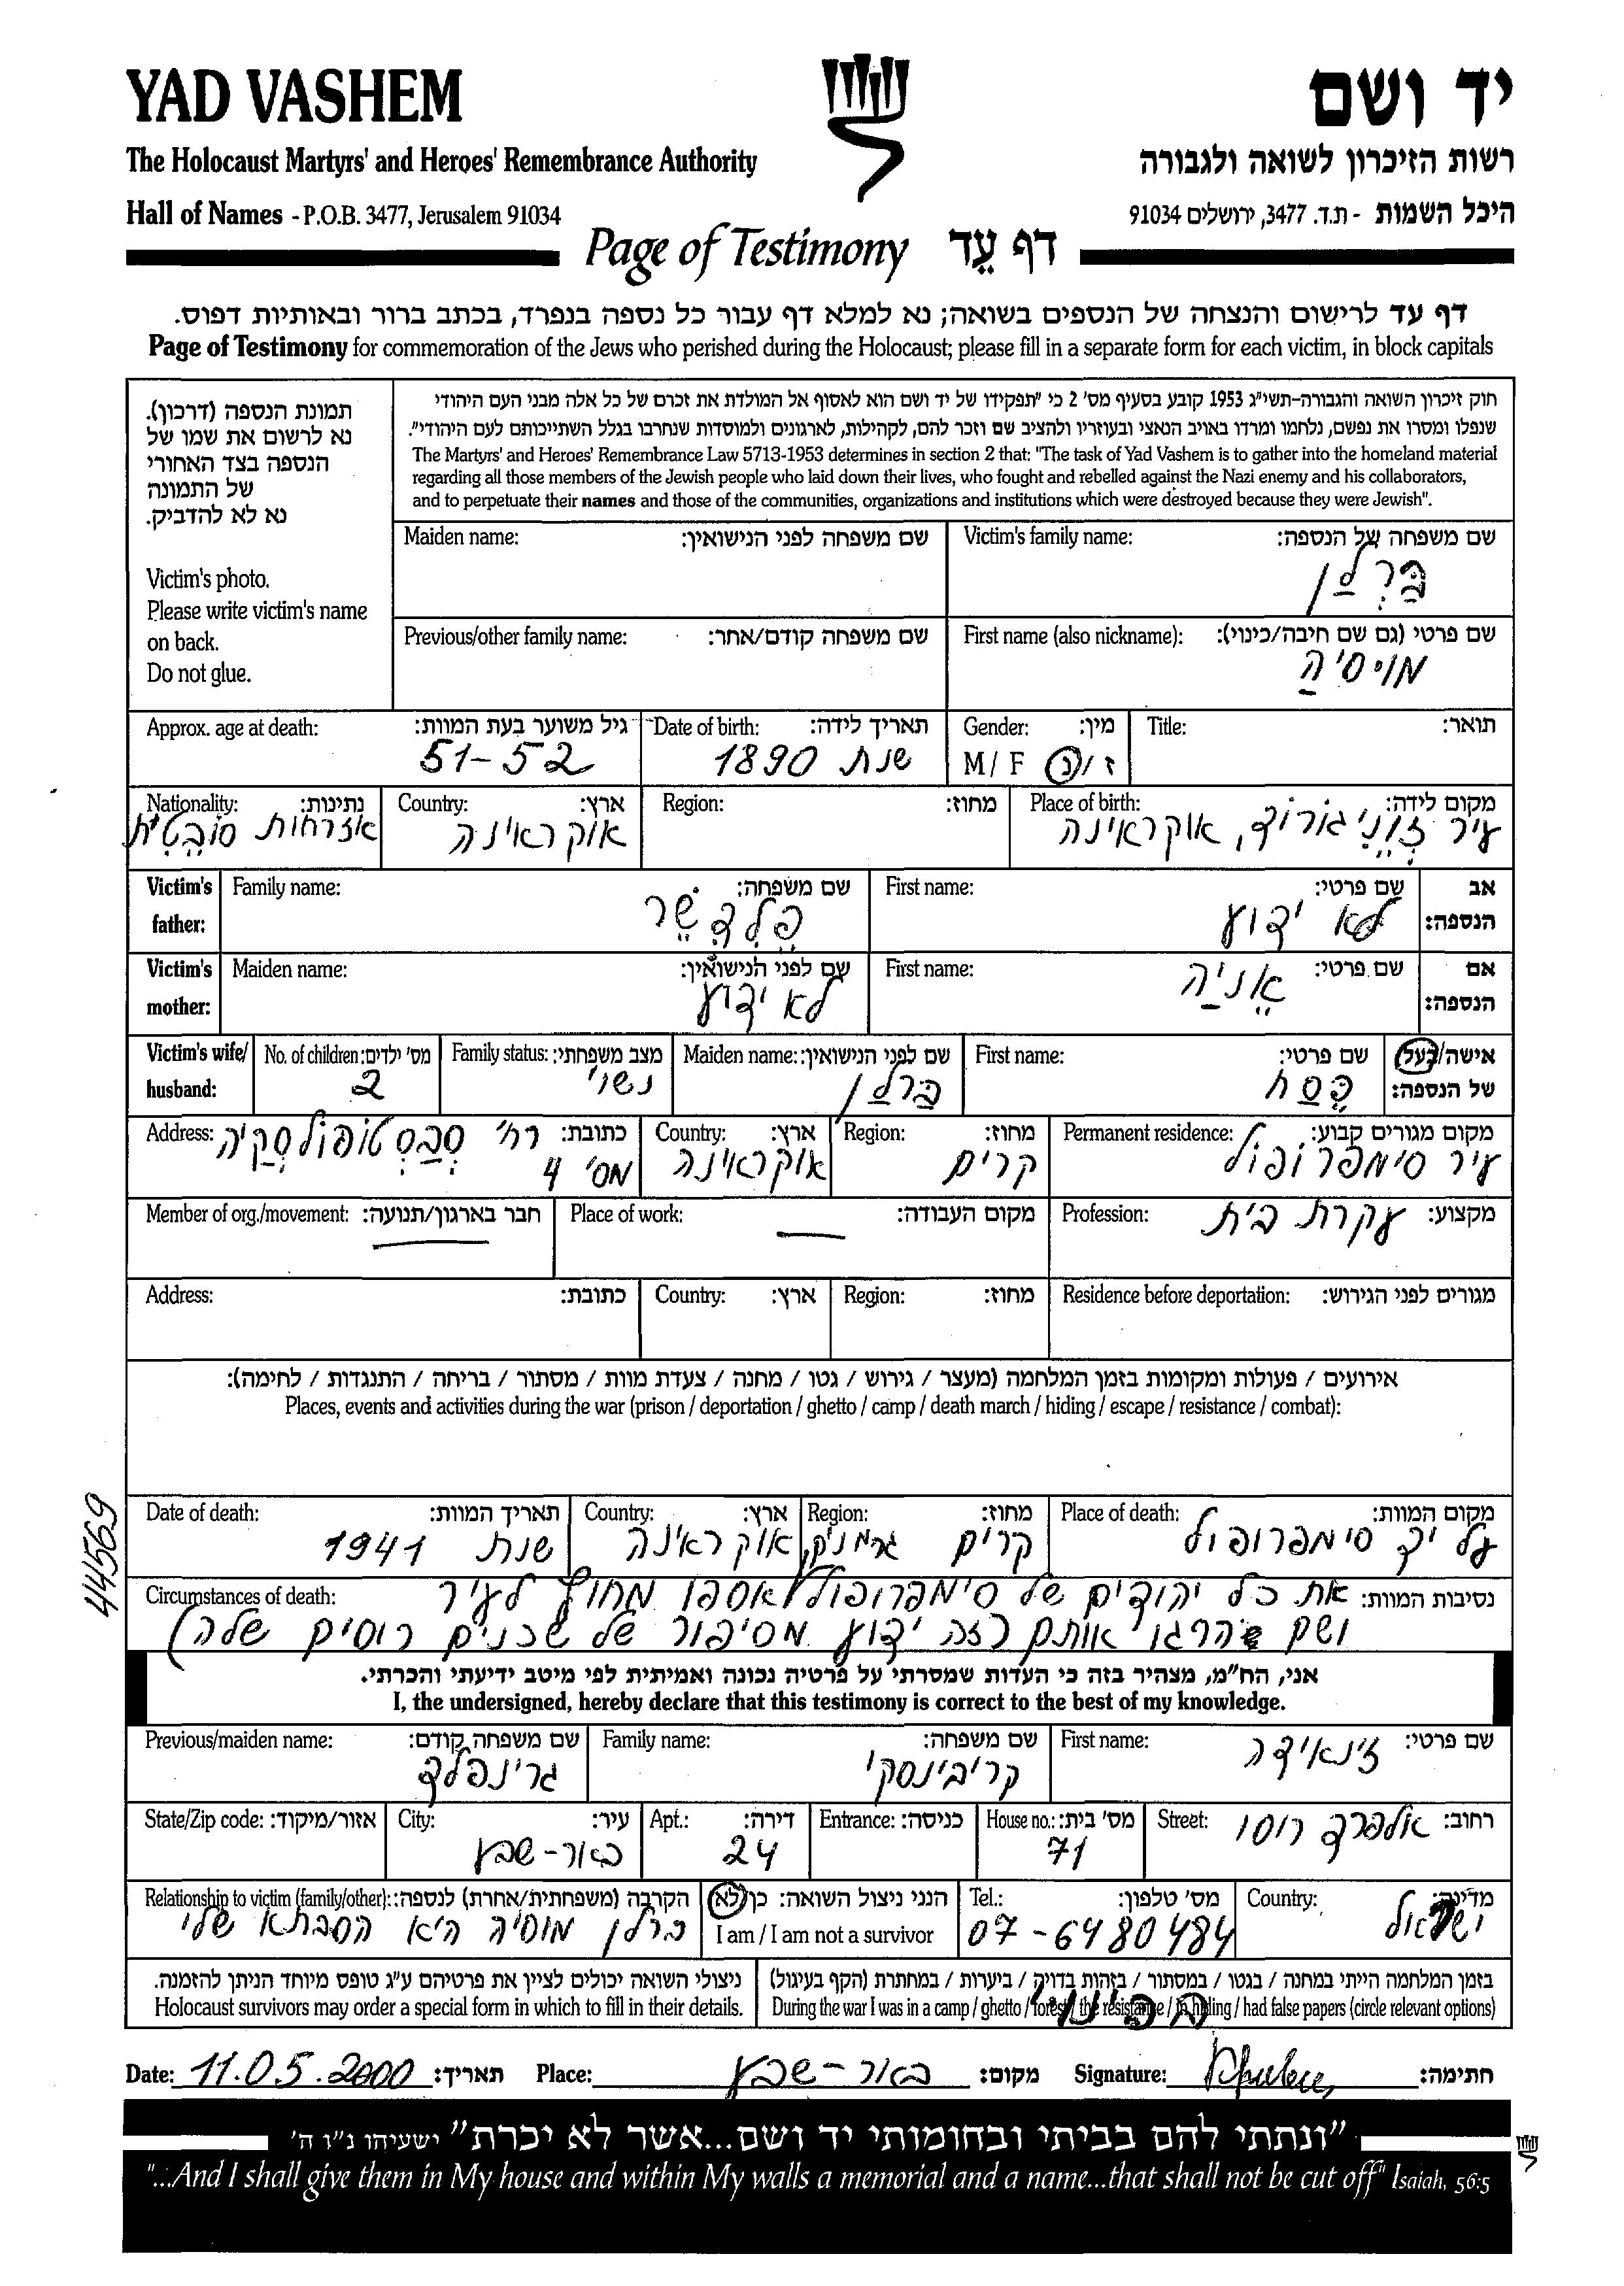 YAD VASHEM
יד ושם
The Holocaust Martyrs' and Heroes' Remembrance Authority
רשות הזיכרון לשואה ולגבורה
Hall of Names - P.O.B. 3477, Jerusalem 91034
היכל השמות - ת.ד. 3477, ירושלים 91034
Page of Testimony דף עֵד
דף עד לרישום והנצחה של הנספים בשואה; נא למלא דף עבור כל נספה בנפרד, בכתב ברור ובאותיות דפוס.
Page of Testimony for commemoration of the Jews who perished during the Holocaust; please fill in a separate form for each victim, in block capitals
תמונת הנספה (דרכון).
נא לרשום את שמו של
הנספה בצד האחורי
של התמונה
נא לא להדביק.
Victim's photo.
Please write victim's name
on back.
Do not glue.
חוק זיכרון השואה והגבורה-תשי"ג 1953 קובע בסעיף מס' 2 כי "תפקידו של יד ושם הוא לאסוף אל המולדת את זכרם של כל אלה מבני העם היהודי
שנפלו ומסרו את נפשם, נלחמו ומרדו באויב הנאצי ובעוזריו ולהציב שם וזכר להם, לקהילות, לארגונים ולמוסדות שנחרבו בגלל השתייכותם לעם היהודי".
The Martyrs' and Heroes' Remembrance Law 5713-1953 determines in section 2 that: "The task of Yad Vashem is to gather into the homeland material
regarding all those members of the Jewish people who laid down their lives, who fought and rebelled against the Nazi enemy and his collaborators,
and to perpetuate their names and those of the communities, organizations and institutions which were destroyed because they were Jewish".
Victim's family name: שם משפחה של הנספה:
ברלן
Maiden name: שם משפחה לפני הנישואין:
First name (also nickname): שם פרטי (גם שם חיבה/כינוי):
מויסיה
Previous/other family name: שם משפחה קודם/אחר:
Title: תואר:
Gender: מין:
M / F ז / נ
Date of birth: תאריך לידה:
שנת 1890
Approx. age at death: גיל משוער בעת המוות:
51-52
Place of birth: מקום לידה:
עיר זוניגורוד, אוקראינה
Region: מחוז:
Country: ארץ:
אוקראינה
Nationality: נתינות:
אזרחות סובטית
Victim's father: אב הנספה:
First name: שם פרטי:
לא ידוע
Family name: שם משפחה:
פלדשר
Victim's mother: אם הנספה:
First name: שם פרטי:
אניה
Maiden name: שם לפני הנישואין:
לא ידוע
Victim's wife/ husband: אישה/בעל של הנספה:
First name: שם פרטי:
פסח
Maiden name: שם לפני הנישואין:
ברלן
Family status: מצב משפחתי:
נשוי
No. of children: מס' ילדים:
2
Permanent residence: מקום מגורים קבוע:
עיר סימפרופול
Region: מחוז:
קרים
Country: ארץ:
אוקראינה
Address: כתובת:
רח' סבסטופולסקיה
מס' 4
Profession: מקצוע:
עקרת בית
Place of work: מקום העבודה:
Member of org./movement: חבר בארגון/תנועה:
Residence before deportation: מגורים לפני הגירוש:
Region: מחוז:
Country: ארץ:
Address: כתובת:
אירועים / פעולות ומקומות בזמן המלחמה (מעצר / גירוש / גטו / מחנה / צעדת מוות / מסתור / בריחה / התנגדות / לחימה):
Places, events and activities during the war (prison / deportation / ghetto / camp / death march / hiding / escape / resistance / combat):
Place of death: מקום המוות:
על יד סימפרופול
Region: מחוז:
קרים
Country: ארץ:
אוקראינה
Date of death: תאריך המוות:
שנת 1941
Circumstances of death: נסיבות המוות:
את כל יהודים של סימפרופול אספו מחוץ לעיר
ושם הרגו אותם (זה ידוע מסיפור של שכנים רוסים שלה)
44569
אני, הח"מ, מצהיר בזה כי העדות שמסרתי על פרטיה נכונה ואמיתית לפי מיטב ידיעתי והכרתי.
I, the undersigned, hereby declare that this testimony is correct to the best of my knowledge.
First name: שם פרטי:
זינאידה
Family name: שם משפחה:
קריבינסקי
Previous/maiden name: שם משפחה קודם:
גרינפלד
Street: רחוב:
אלפרד רוסו
House no.: מס' בית:
71
Entrance: כניסה:
Apt.: דירה:
24
City: עיר:
באר-שבע
State/Zip code: אזור/מיקוד:
Country: מדינה:
ישראל
Tel.: מס' טלפון:
07-6480484
הנני ניצול השואה: כן/לא
I am / I am not a survivor
Relationship to victim (family/other): הקרבה (משפחתית/אחרת) לנספה:
ברלן מוסיה היא הסבתא שלי
בזמן המלחמה הייתי במחנה / בגטו / במסתור / בזהות בדויה / ביערות / במחתרת (הקף בעיגול)
During the war I was in a camp / ghetto / forest / the resistance / in hiding / had false papers (circle relevant options)
ניצולי השואה יכולים לציין את פרטיהם ע"ג טופס מיוחד הניתן להזמנה.
Holocaust survivors may order a special form in which to fill in their details.
Date: 11.05.2000 תאריך: Place: באר-שבע מקום: Signature: חתימה:
"ונתתי להם בביתי ובחומותי יד ושם...אשר לא יכרת" ישעיהו נ"ו ה'
"...And I shall give them in My house and within My walls a memorial and a name...that shall not be cut off" Isaiah, 56:5